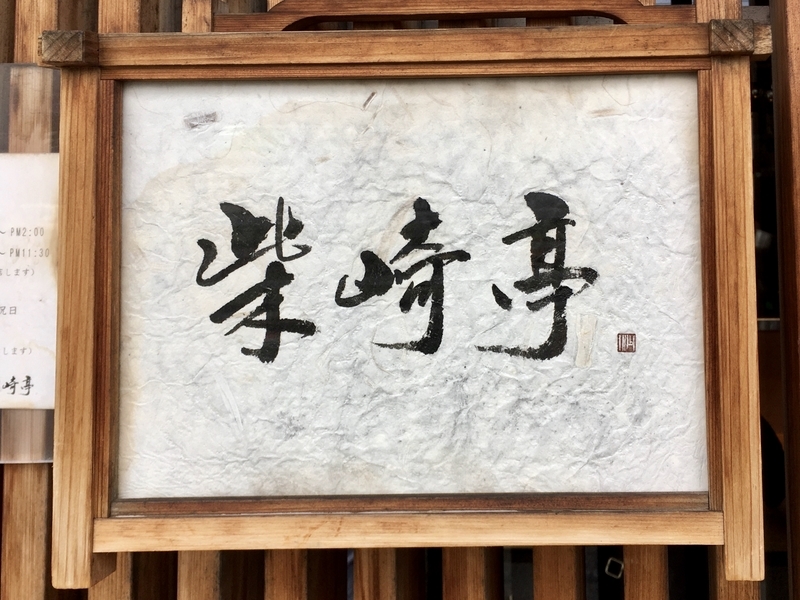 柴崎亭
～ PM2:00
～ PM11:30
します）
祝日
します）
崎亭